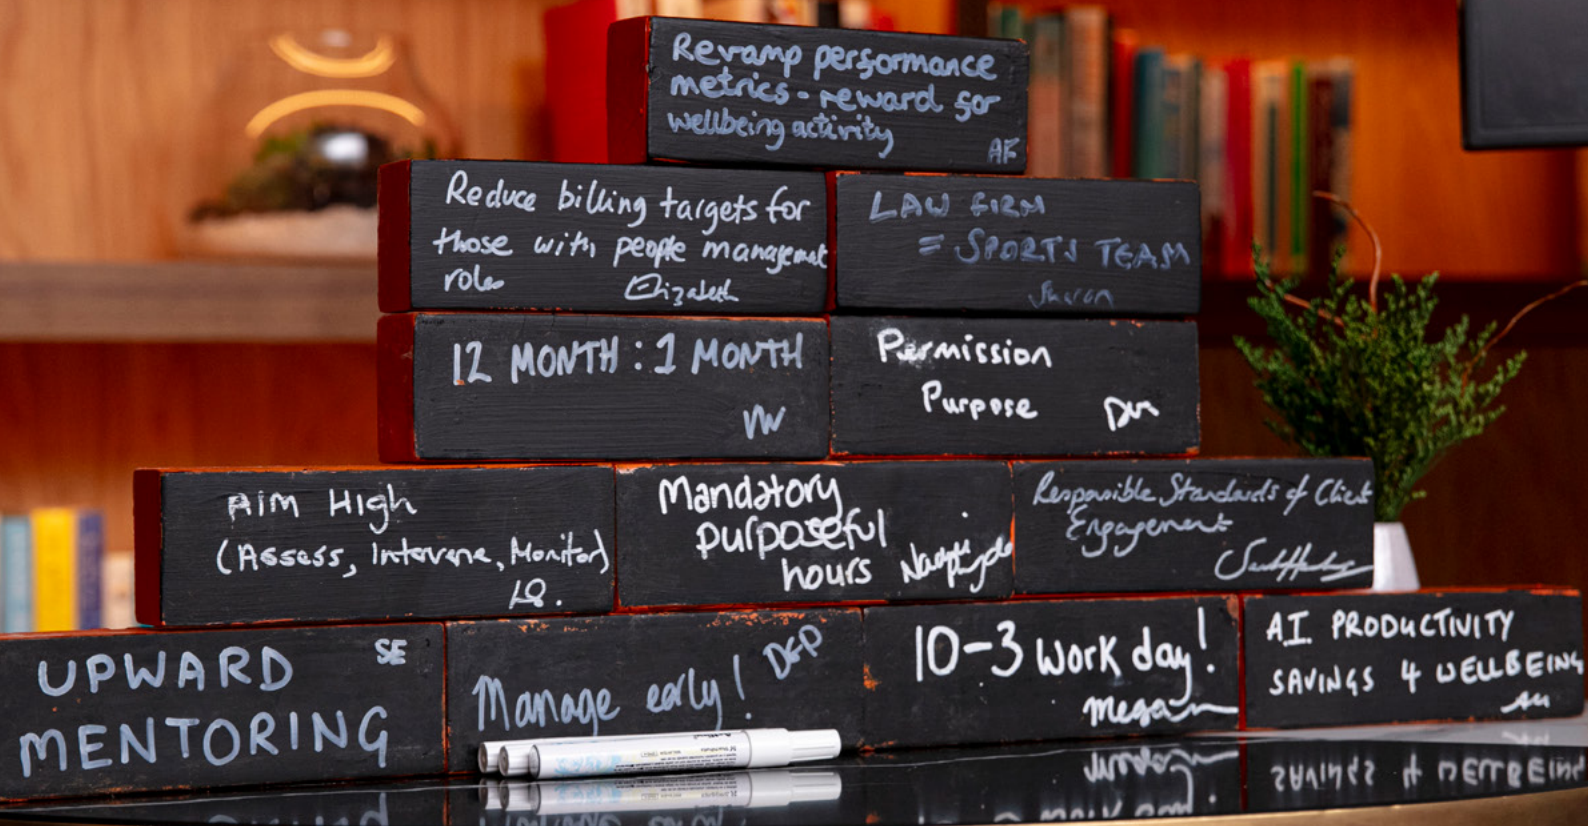 Revamp performance
metrics - reward for
wellbeing activity
AF
Reduce billing targets for
those with people management
roles
Elizabeth
LAW FIRM
= SPORTS TEAM
12 MONTH : 1 MONTH
VW
Permission
Purpose
AIM HIGH
(Assess, Intervene, Monitor)
Mandatory
purposeful
hours
Responsible Standards of Client
Engagement
UPWARD
MENTORING
SE
Manage early!
DGP
10-3 work day!
megan
A.I. PRODUCTIVITY
SAVINGS 4 WELLBEING